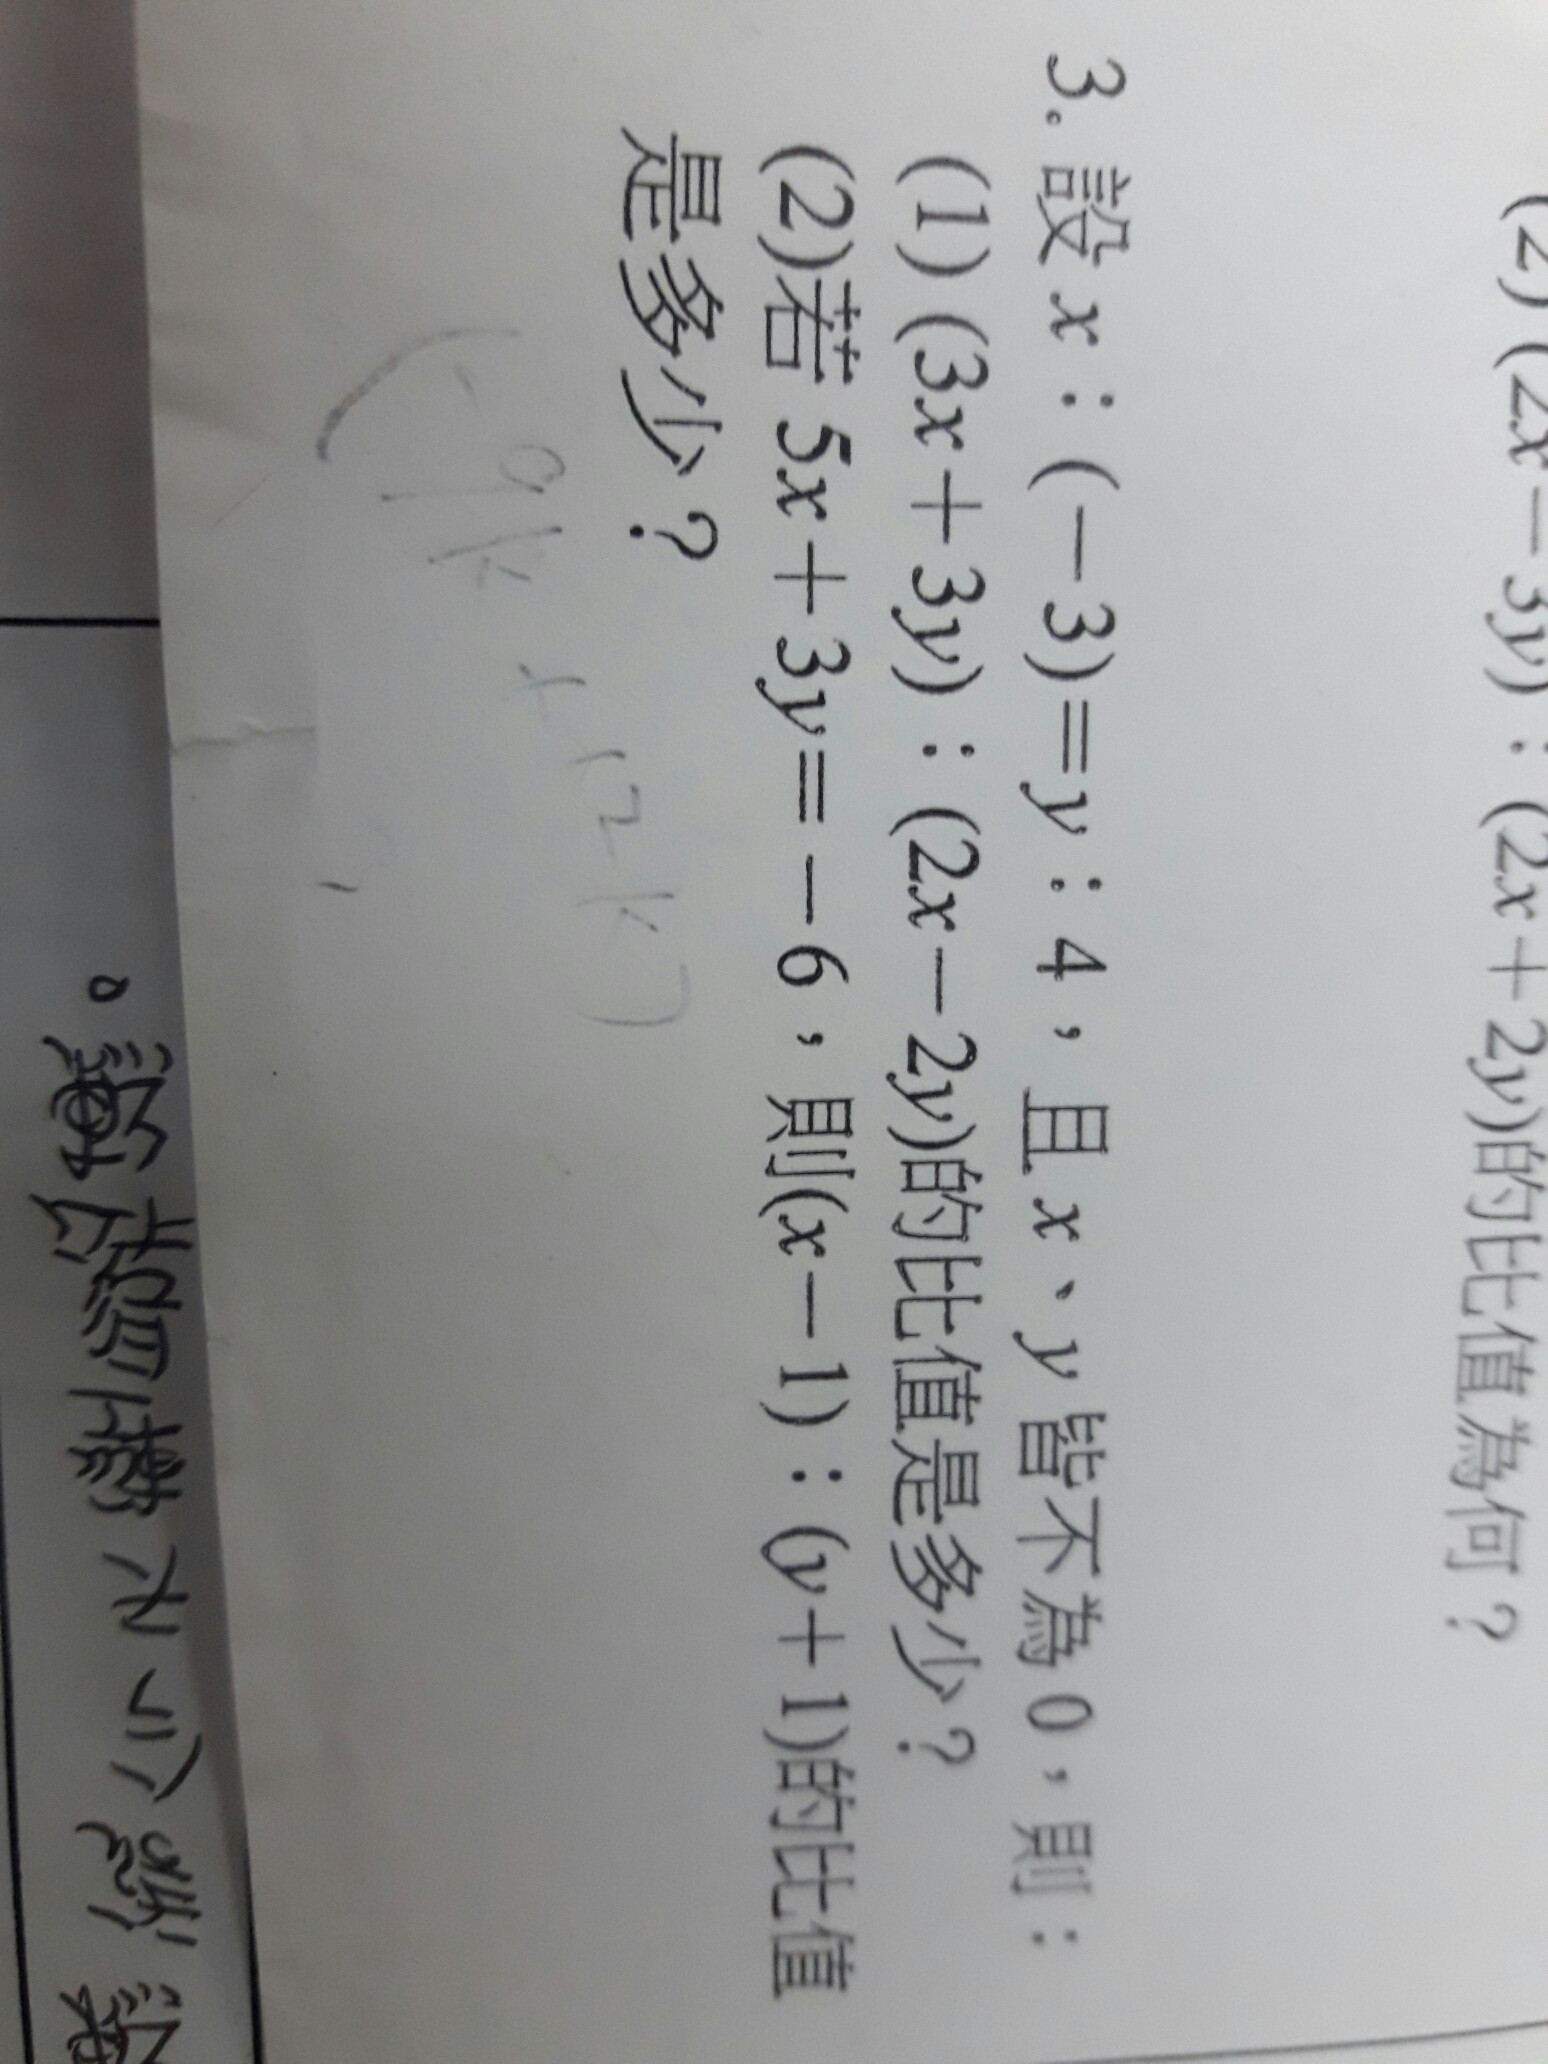 (2) (2x－3y)：(2x＋2y)的比值為何？
3. 設 x：(－3)＝y：4，且 x、y 皆不為 0，則：
(1) (3x＋3y)：(2x－2y)的比值是多少？
(2)若 5x＋3y＝－6，則(x－1)：(y＋1)的比值
是多少？
(-9k + 12k)